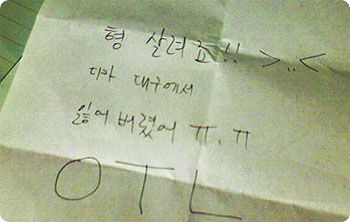 형 살려죠!! >..<
디마 대구에서
잃어버렸어 ㅠ.ㅠ
OTL